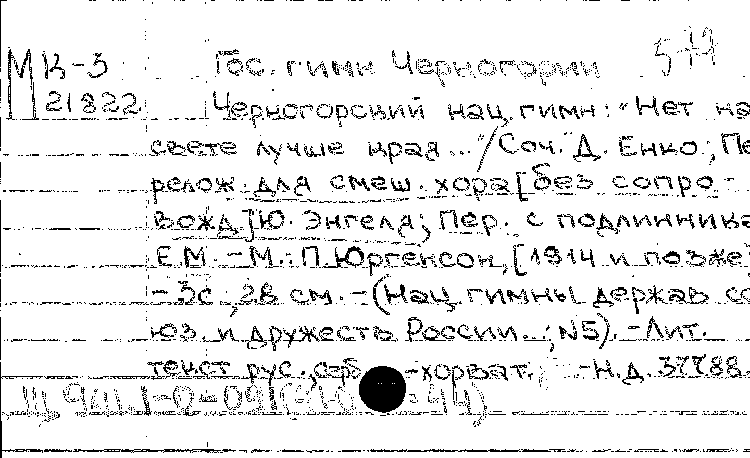 МК-3 Гос. гимн Черногории
21822 Черногорский нац. гимн: "Нет на
свете лучше края..." / Соч. Д. Енко; Пе
релож. для смеш. хора [без сопро-
вожд.] Ю. Энгеля; Пер. с подлинника
Е.М. - М.: П. Юргенсон, [1914 и позже]
- 3с.; 28 см. - (Нац. гимны держав со
юз. и дружеств России...; N5). - Лит.
текст рус., серб -хорват. - Н.д. 37788.